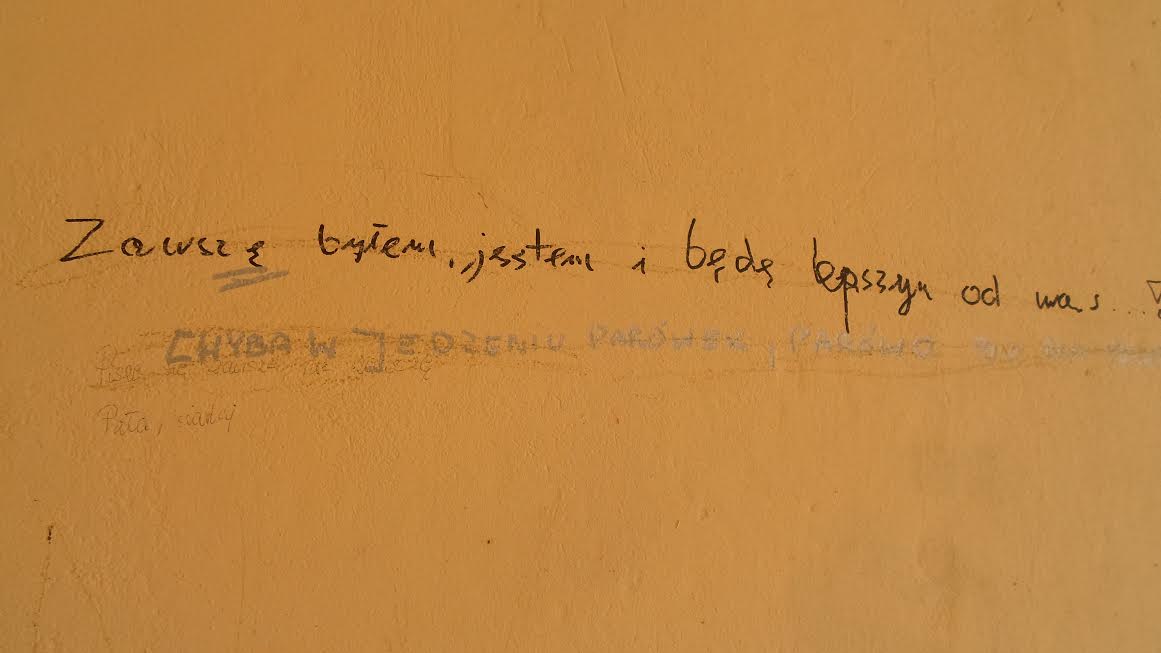 Zawszę byłem, jestem i będę lepszym od was...
CHYBA W JEDZENIU PARÓWEK, PARÓWO
Pisze się zawsze nie
Pała, siadaj